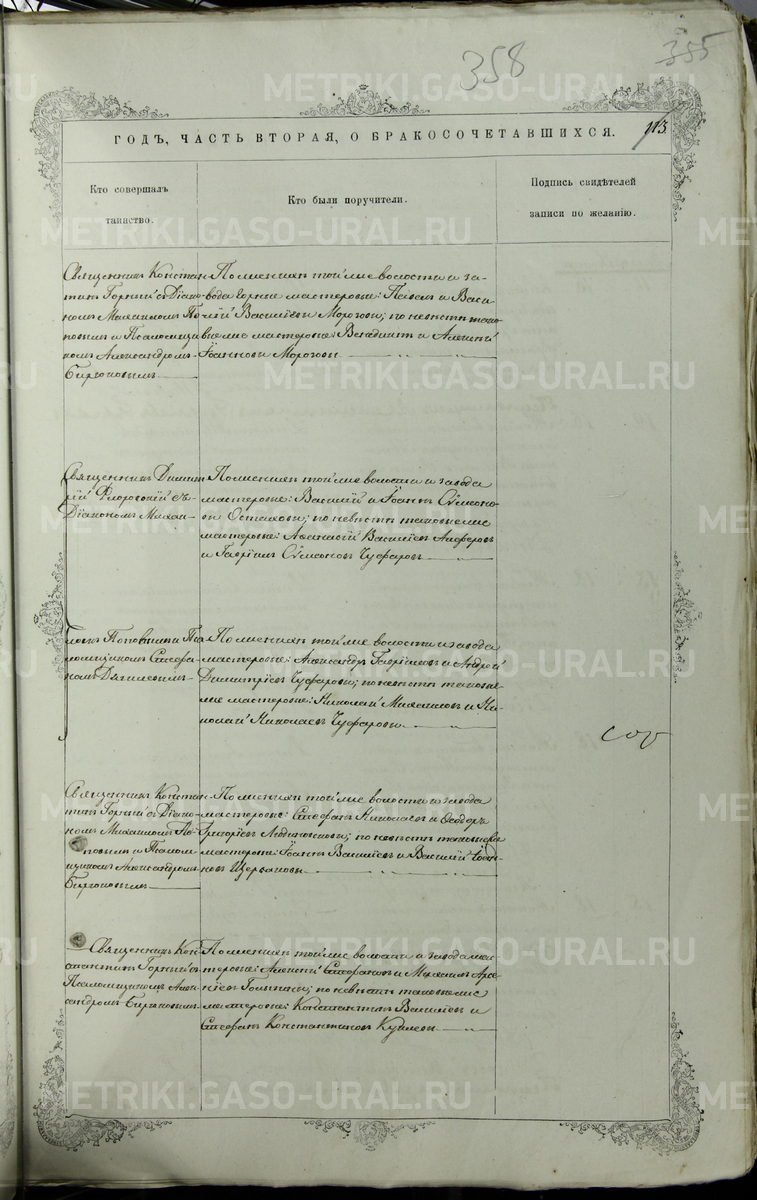 358
355
ГОДЪ, ЧАСТЬ ВТОРАЯ, О БРАКОСОЧЕТАВШИХСЯ.
113
Кто совершалъ
таинство.
Кто были поручители.
Подпись свидѣтелей
записи по желанію.
Священникъ Констан-
тинъ Горный съ Діако-
номъ Михаиломъ По-
повымъ и Псаломщи-
комъ Александромъ
Бирюковымъ
По женихѣ той же волости и за-
вода горные мастеровые: Павелъ и Васи-
лій Василіевы Морозовы; по невѣстѣ тако-
вые же мастеровые: Венедиктъ и Алексій
Іоанновы Морозовы
Священникъ Димит-
рій Флоровскій съ
Діакономъ Михаи-
По женихѣ той же волости и завода
мастеровые: Василій и Іоаннъ Сѵмеоно-
вы Остаховы; по невѣстѣ таковые же
мастеровые: Аѳанасій Василіевъ Алферовъ
и Гавріилъ Сѵмеоновъ Чуфаровъ
ломъ Поповымъ и Пса-
ломщикомъ Стефа-
номъ Дягилевымъ
По женихѣ той же волости и завода
мастеровые: Александръ Гавріиловъ и Андрей
Димитріевъ Чуфаровы; по невѣстѣ таковы-
же мастеровые: Николай Михаиловъ и Ни-
колай Николаевъ Чуфаровы
Священникъ Констан-
тинъ Горный съ Діако-
номъ Михаиломъ По-
повымъ и Псалом-
щикомъ Александромъ
Бирюковымъ
По женихѣ той же волости и завода
мастеровые: Стефанъ Николаевъ и Ѳеодоръ
Григоріевъ; по невѣстѣ таковые же
мастеровые: Іоаннъ Василіевъ и Василій Іоан-
новъ Щербаковы
Священникъ Кон-
стантинъ Горный съ
Псаломщикомъ Алек-
сандромъ Бирюковымъ
По женихѣ той же волости и завода мас-
теровые: Алексій Стефановъ и Михаилъ Арсе-
ніевъ; по невѣстѣ таковые же
мастеровые: Константинъ Василіевъ и
Стефанъ Константиновъ
METRIKI.GASO-URAL.RU